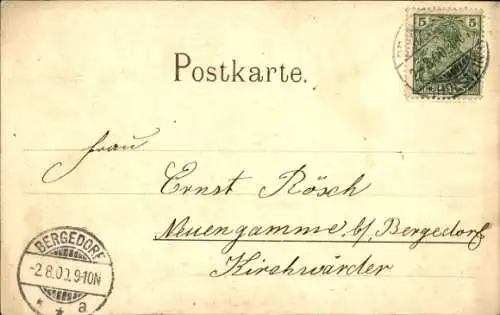 5
Postkarte.
Frau
Ernst Rösch
Neuengamme b/ Bergedorf
Kirchwärder
BERGEDORF
-2.8.00. 9-10N
* * a